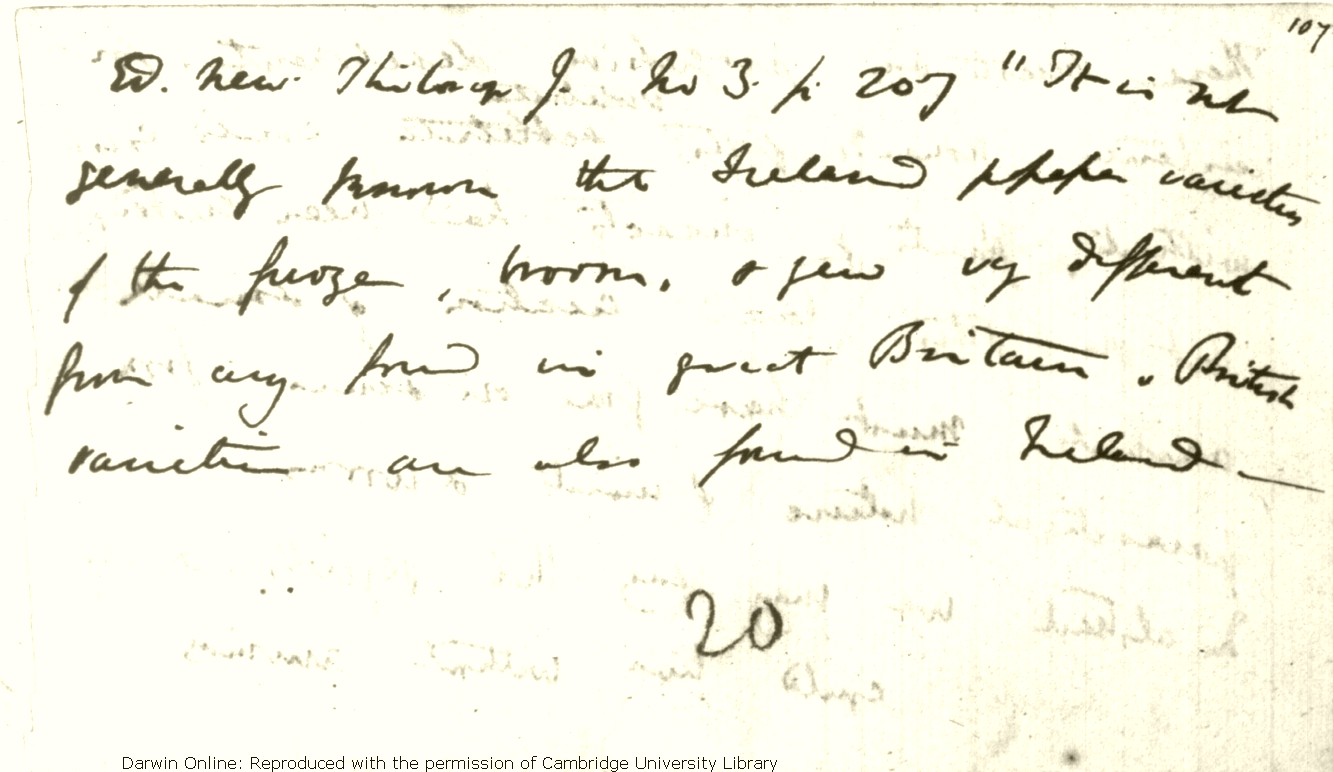 107
Ed. New. Philosop J. No 3. p. 207 "It is not
generally known that Ireland possesses varieties
of the furze, broom, & yew very different
from any found in great Britain. British
varieties are also found in Ireland —
20
Darwin Online: Reproduced with the permission of Cambridge University Library